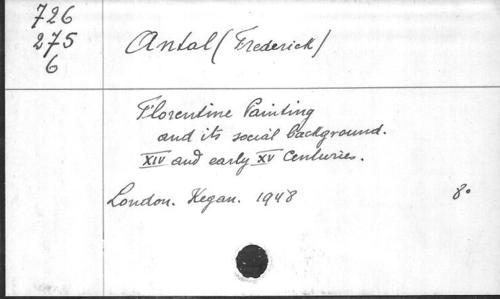 726
275
6
Antal (Frederick)
Florentine Painting
and its social background.
XIV and early XV Centuries.
London. Kegan. 1948 8°